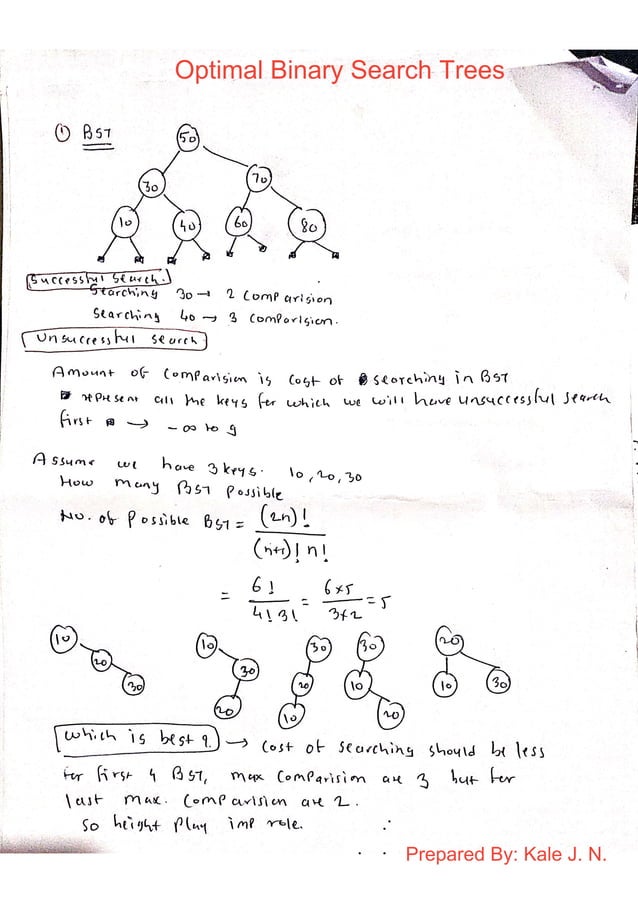 Optimal Binary Search Trees
① BST
50
30 70
10 40 60 80
Successful Search.
Searching 30 → 2 comparision
Searching 40 → 3 comparision.
Unsuccessful search
Amount of comparision is cost of searching in BST
represent all the keys for which we will have unsuccessful search
first → -∞ to 9
Assume we have 3 keys. 10, 20, 30
How many BST possible
No. of possible BST = (2n)! / (n+1)! n!
= 6! / 4! 3! = 6*5 / 3*2 = 5
10 10 30 30 20
20 30 20 10 10 30
30 20 10 20
Which is best ?. → cost of searching should be less
for first 4 BST, max comparision are 3 but for
last max. comparision are 2.
So height play imp role.
Prepared By: Kale J. N.